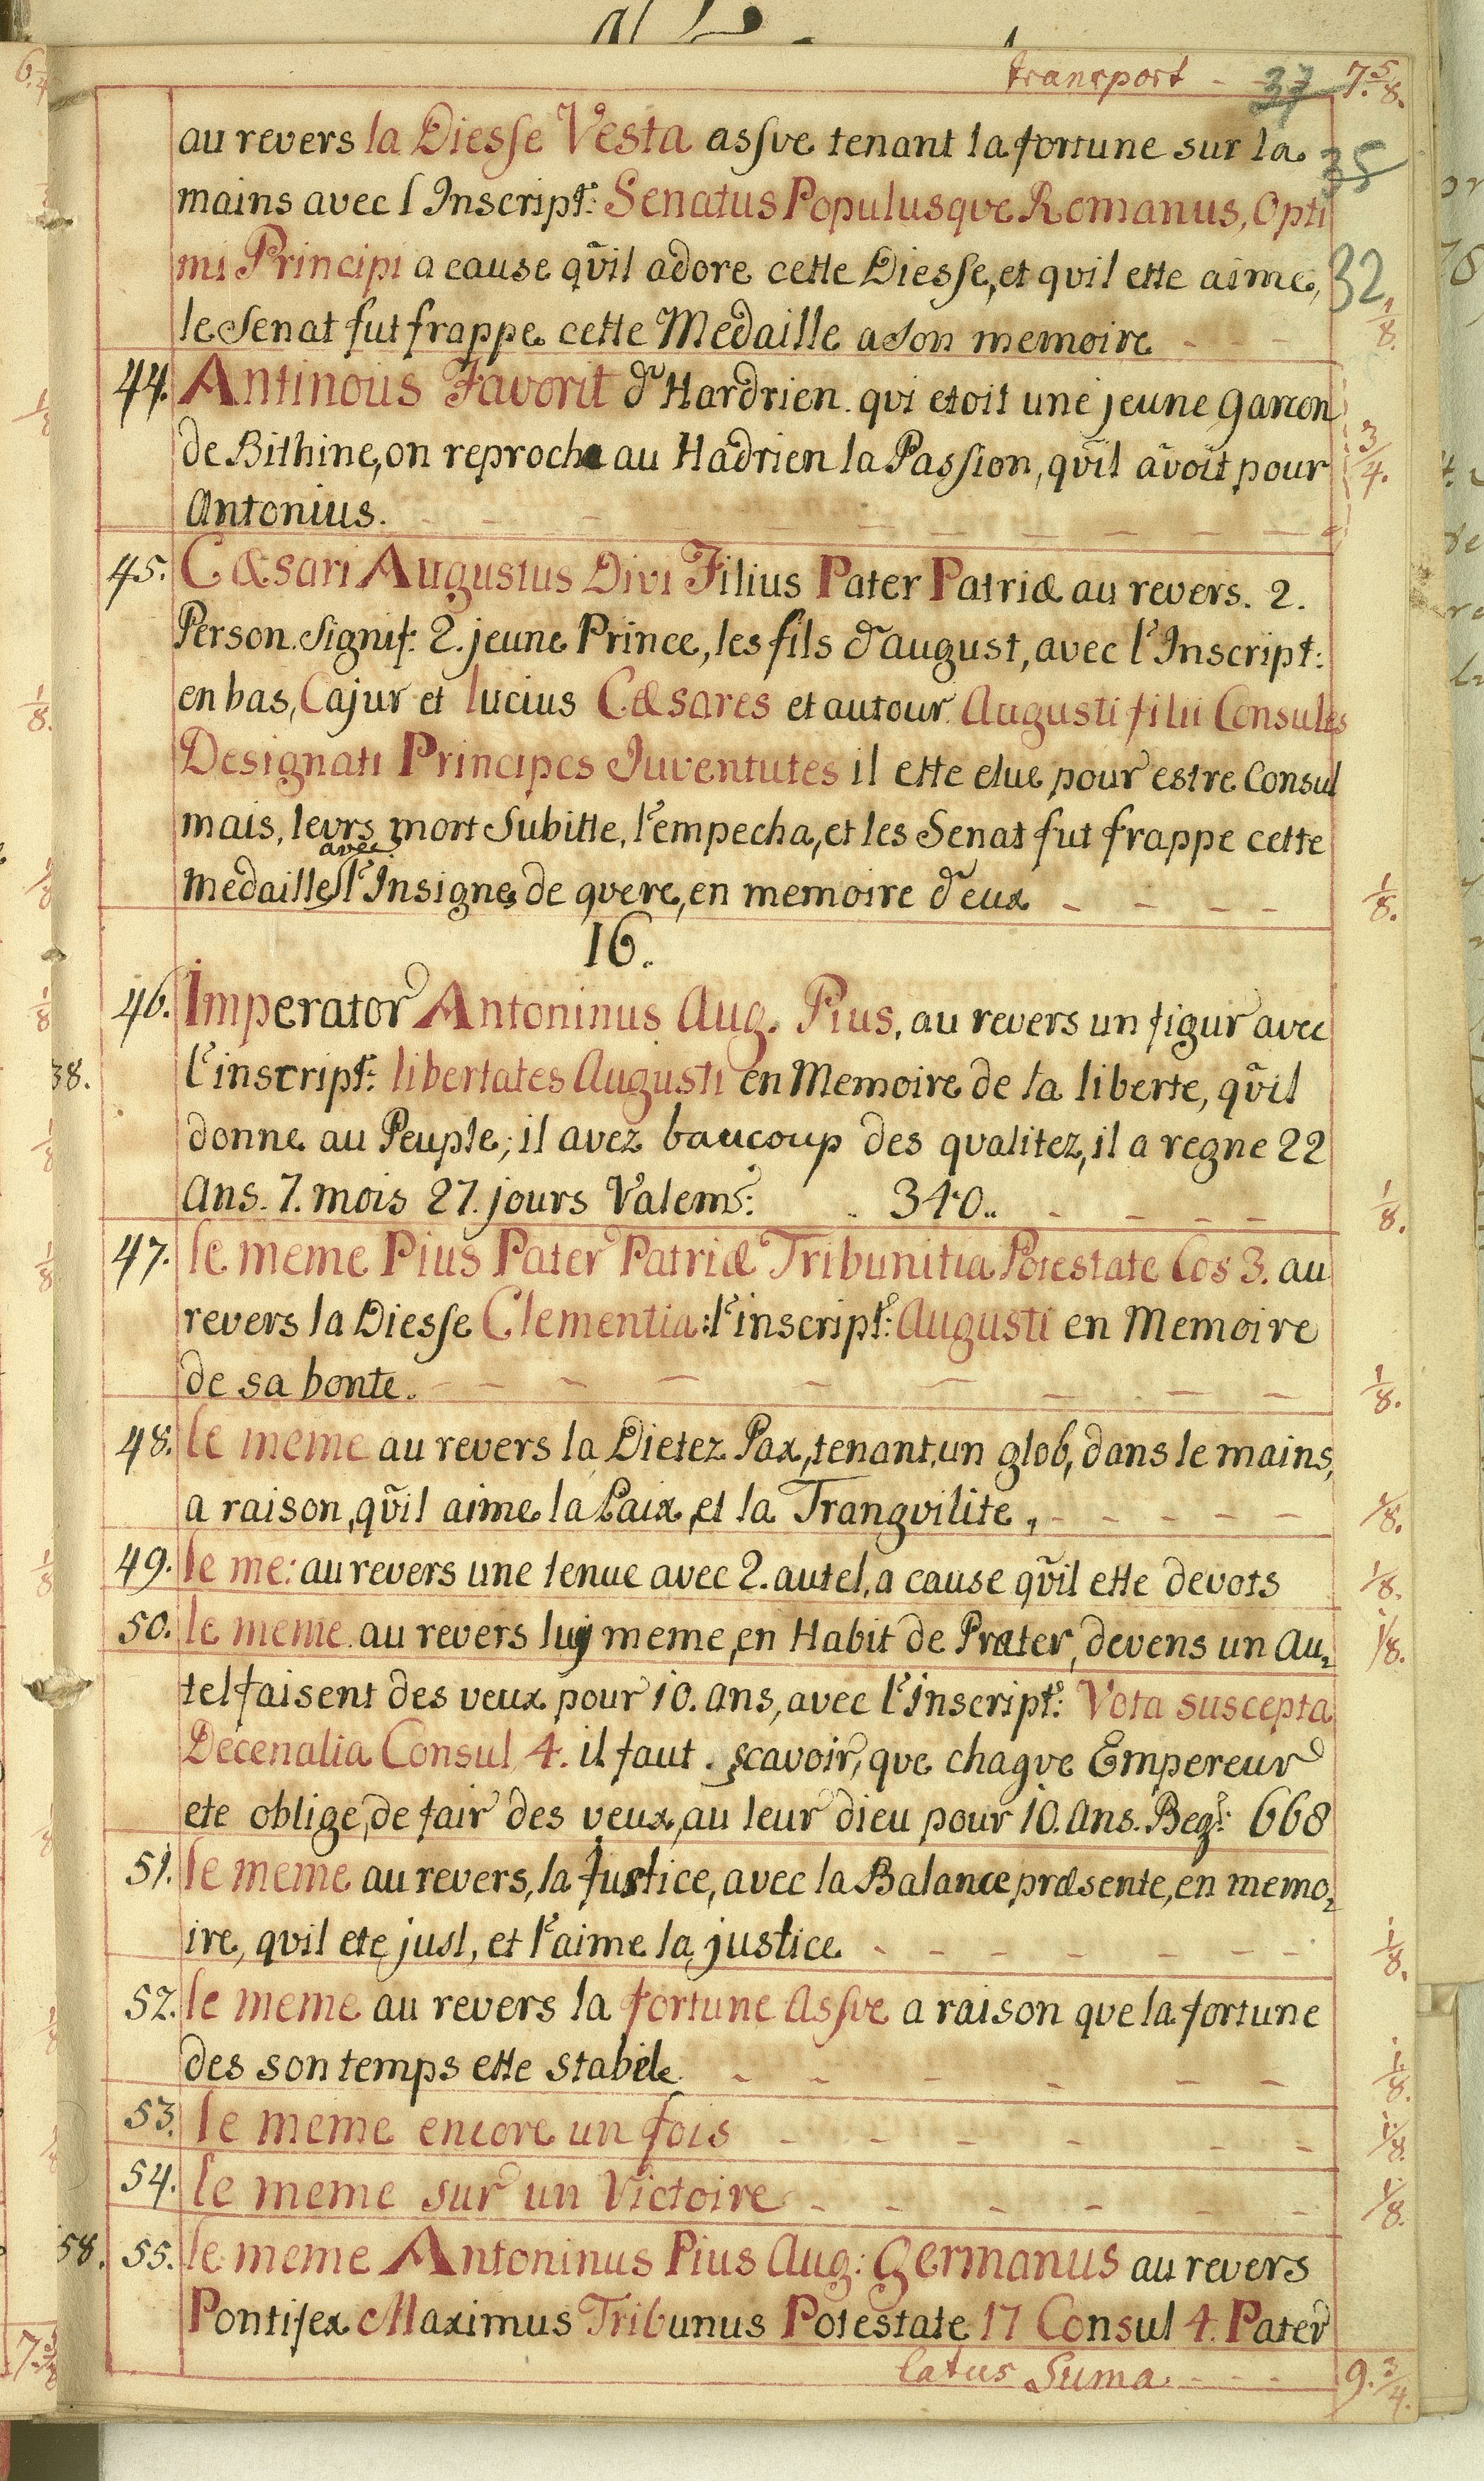 transport - 37 7.5/8.
au revers la Diesse Vesta assve tenant la fortune sur la 35
mains avec l Inscript: Senatus Populusqve Romanus, Opti
mi Principi a cause qvil adore cette Diesse, et qvil ette aime, 32
le Senat fut frappe cette Medaille a son memoire - - - 1/8.
44. Antinous Favorit d'Hardrien. qvi etoit une jeune garcon
de Bithine, on reproche au Hadrien la Passion, qvil avoit pour 3/4.
Antonius. - - -
45. Cæsari Augustus Divi Filius Pater Patriæ au revers. 2.
Person. Signif: 2. jeune Prince, les fils d'august, avec l'Inscript:
en bas, Cajur et lucius Cæsares et autour Augusti filii Consules
Designati Principes Juventutes il ette elue pour estre Consul
mais, levrs mort Subitte, l'empecha, et les Senat fut frappe cette
avec
medaille l'Insigne de qvere, en memoire d'eux - - - - 1/8.
16.
46. Imperator Antoninus Aug. Pius, au revers un figur avec
l'inscript: libertates Augusti en Memoire de la liberte, qvil
donne au Peuple, il avez baucoup des qvalitez, il a regne 22
Ans. 7. mois 27. jours Valem: . 340.. - - - - 1/8.
47. le meme Pius Pater Patriæ Tribunitia Potestate Cos 3. au
revers la Diesse Clementia: l'inscript: Augusti en Memoire
de sa bonte. - - - - - - - - 1/8.
48. le meme au revers la Dietez Pax, tenant, un glob, dans le mains,
a raison, qvil aime la Paix, et la Tranqvilite, - - - - - 1/8.
49. le me: au revers une tenue avec 2. autel, a cause qvil ette devots 1/8.
50. le meme. au revers luy meme, en Habit de Prater, devens un Au, 1/8.
tel faisent des veux pour 10. ans, avec l'inscript: Vota suscepta
Decenalia Consul 4. il faut. scavoir, que chaqve Empereur
ete oblige, de fair des veux, au leur dieu pour 10. Ans. Beg: 668
51. le meme au revers, la Justice, avec la Balance præsente, en memo,
ire, qvil ete just, et l'aime la justice - - - - - - - 1/8.
52. le meme au revers la fortune Assve a raison que la fortune
des son temps ette stabile - - - - - - 1/8.
53. le meme encore un fois - - - - - - 1/8.
54. le meme sur un Victoire - - - - - - 1/8.
58. 55. le meme Antoninus Pius Aug: Germanus au revers
Pontifex Maximus Tribunus Potestate 17 Consul 4. Pater
latus Suma - - - 9.3/4.
38.